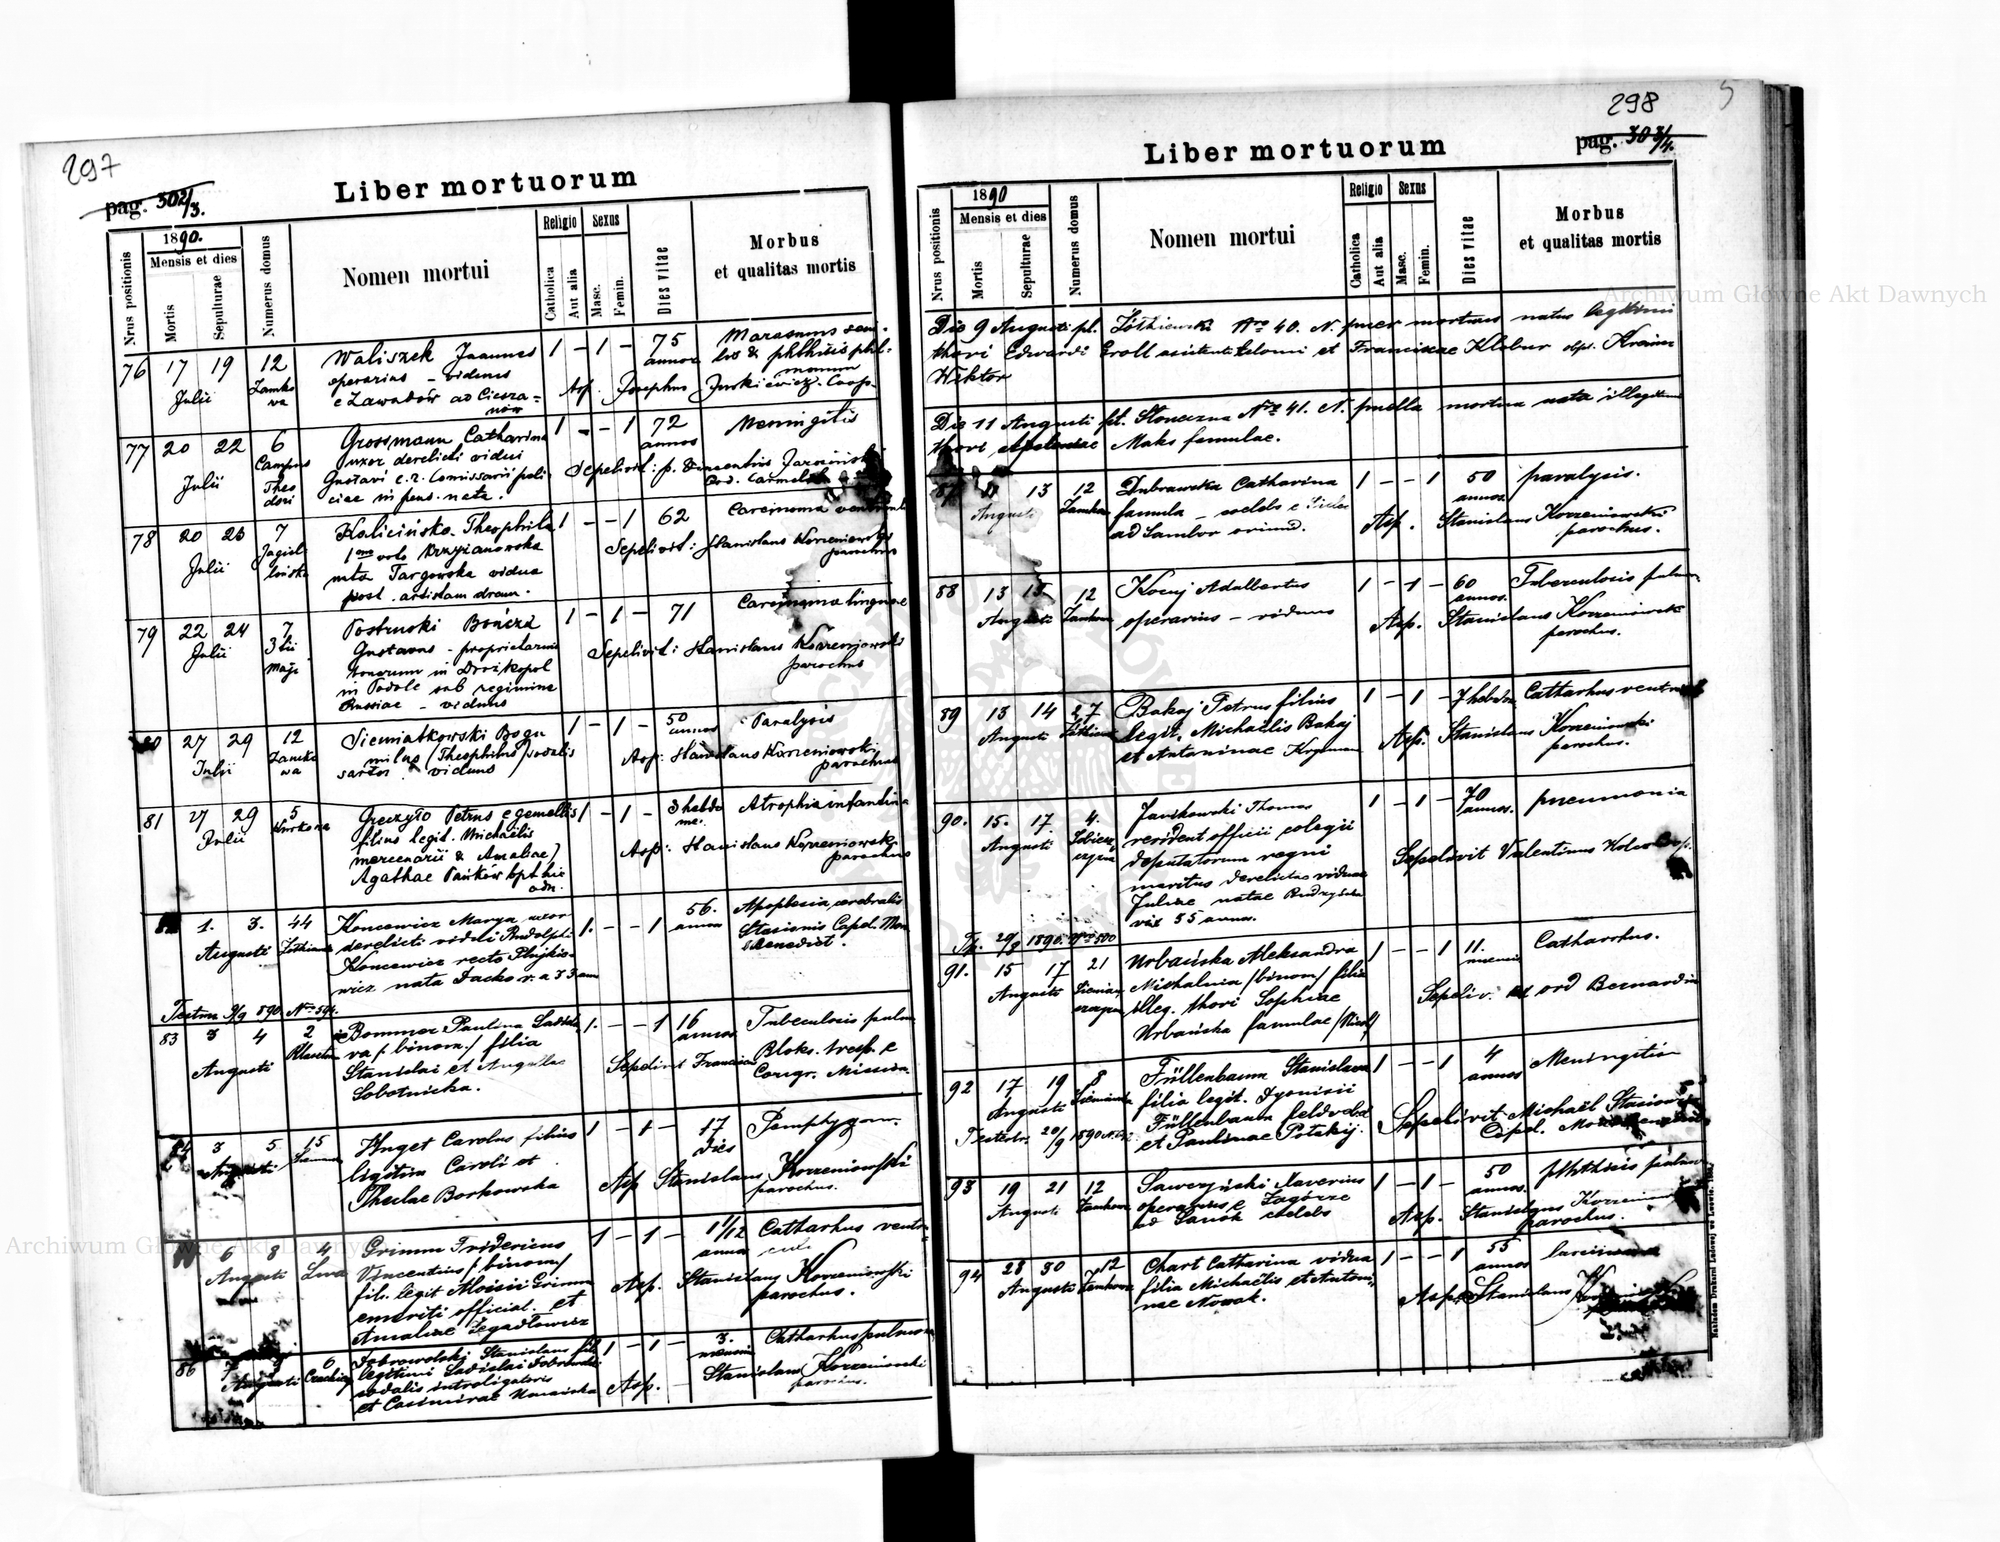 297
pag. 302/3.
Liber mortuorum
Nrus positionis
1890.
Mensis et dies
Mortis
Sepulturae
Numerus domus
Nomen mortui
Religio
Catholica
Aut alia
Sexus
Masc.
Femin.
Dies vitae
Morbus
et qualitas mortis
76 17 19 12 Waliszek Joannes 1 - 1 - 75 Marasmus seni-
Julii Zamko operarius - viduus annos lis & phthisis pul-
wa e Zawadów ad Ciesza- monum
nów Asp. Josephus Coop.
77 20 22 6 Grossmann Catharina 1 - - 1 72 Meningitis
Julii Campus uxor derelicti vidui annos
Theo Gustavi c. r. Comissarii poli- Sepelivit: p. Vincentius
dori ciae in pens. nata. Ord. Carmelit
78 20 23 7 Kalicińska Theophila 1 - - 1 62 Carcinoma
Julii Jagiel- 1mo voto Krzyżanowska Sepelivit: Stanislaus Korzeniowski
lońska nata Targowska vidua parochus
post artistam dram.
79 22 24 7 Postruski Bończa 1 - 1 - 71 Carcinoma linguae
Julii 3tii Gustavus - proprietarius Sepelivit: Stanislaus Korzeniowski
Maji bonorum in Drożkopol parochus
in Podole sub regimine
Russiae - viduus
80 27 29 12 Siemiatkowski Bogu 1 - 1 - 50 Paralysis
Julii Zamko milus (Theophilus) sodalis annos
wa sartor viduus Asp: Stanislaus Korzeniowski
parochus
81 27 29 5 Greczyło Petrus e gemellis 1 - 1 - 3 hebdo Atrophia infantum
Julii Kurkowa filius legit. Michaëlis mas.
mercenarii & Amaliae Asp: Stanislaus Korzeniowski
Agathae Pańków bpt. hic parochus
adn.
82 1. 3. 44 Koncewicz Marya uxor 1. - - 1 56. Apoplexia cerebralis
Augusti derelicti vidui Rudolphi annos Stasionis Capel. Mon
Koncewicz recte Benedict.
wicz nata Dacko
Testm 9/9 890. No 594.
83 3 4 2 Bommer Paulina Ladisla 1. - - 1 16 Tuberculosis pulm.
Augusti va /: binom./ filia annos
Stanislai et Angelae Sepelivit Francisc Bloks. Presb. e
Sobotnicka. Congr. Mission
84 3 5 15 Huget Carolus filius 1 - 1 - 17 Pemphygom.
Augusti legitim Caroli et dies
Theclae Borkowska Asp Stanislaus Korzeniowski
parochus.
6 8 4 Grimm Fridericus 1 - 1 - 1 1/12 Catharhus ventri-
Augusti Lwa Vincentius /: binom/ annos culi
fil. legit Aloisii Grimm Asp. Stanislaus Korzeniowski
emeriti official. et parochus.
Amaliae Zegadłowicz
86 7 6 Dobrowolski Stanislaus fil. 1 - 1 - 3. Catharhus pulmon
Augusti legitimi Ladislai Dobrowolski mensium
sodalis introligatoris Asp. Stanislaus Korzeniowski
et Casimirae parochus.
298
5
pag. 303/4.
Liber mortuorum
Nrus positionis
1890
Mensis et dies
Mortis
Sepulturae
Numerus domus
Nomen mortui
Religio
Catholica
Aut alia
Sexus
Masc.
Femin.
Dies vitae
Morbus
et qualitas mortis
Die 9 Augusti pl. Żółkiewska Nro 40. N. puer mortuus natus legitimi
thori Edwardi Groll et Franciscae Klebur
Wiktor
Die 11 Augusti pl. Słoneczna Nro 41. N. puella mortua nata illegitimi
thori Apoloniae Maks famulae.
87 11 13 12 Dubrawska Catharina 1 - - 1 50 paralysis.
Augusti Zamkowa famula - caelebs e annos
ad Sambor oriund. Asp. Stanislaus Korzeniowski
parochus.
88 13 15 12 Kocuj Adalbertus 1 - 1 - 60 Tuberculosis pulm.
Augusti Zamkowa operarius - viduus annos.
Asp. Stanislaus Korzeniowski
parochus.
89 13 14 27 Bakaj Petrus filius 1 - 1 - 7 hebdom Catharhus ventri
Augusti legit. Michaëlis Bakaj Asp. Stanislaus Korzeniowski
et Antoninae parochus.
90. 15. 17. 4. Jaućkowski Thomas 1 - 1 - 70 pneumonia
Augusti officii collegii annos.
deputatorum regni Sepelivit Valentinus
maritus derelictus viduae
Juliae natae
vix 35 annos.
Tp. 20/9 1890. Nro 500
91. 15 17 21 Urbańska Aleksandra 1 - - 1 11. Catharrhus.
Augusti Michalina /binom/ filia mensium
illeg. thori Sophiae Sepeliv. ord Bernardin
Urbańska famulae
92 17 19 Füllenbaum Stanislava 1 - - 1 4 Meningitis
Augusti filia legit. Dyonisii annos
Füllenbaum feldvebel Sepelivit Michaël Stasionis
et Paulinae Potakij. Capel.
93 19 21 12 Sawczyński Xaverius 1 - 1 - 50 phthisis pulm
Augusti Zamkowa operarius e Zagórze annos.
ad Sanok caelebs Asp. Stanislaus Korzeniowski
parochus.
94 28 30 12 Chart Catharina vidua 1 - - 1 55
Augusti Zamkowa filia Michaëlis et Antoni- annos
nae Nowak. Asp. Stanislaus
Nakładem Drukarni Ludowej we Lwowie.
Archiwum Główne Akt Dawnych
Archiwum Główne Akt Dawnych